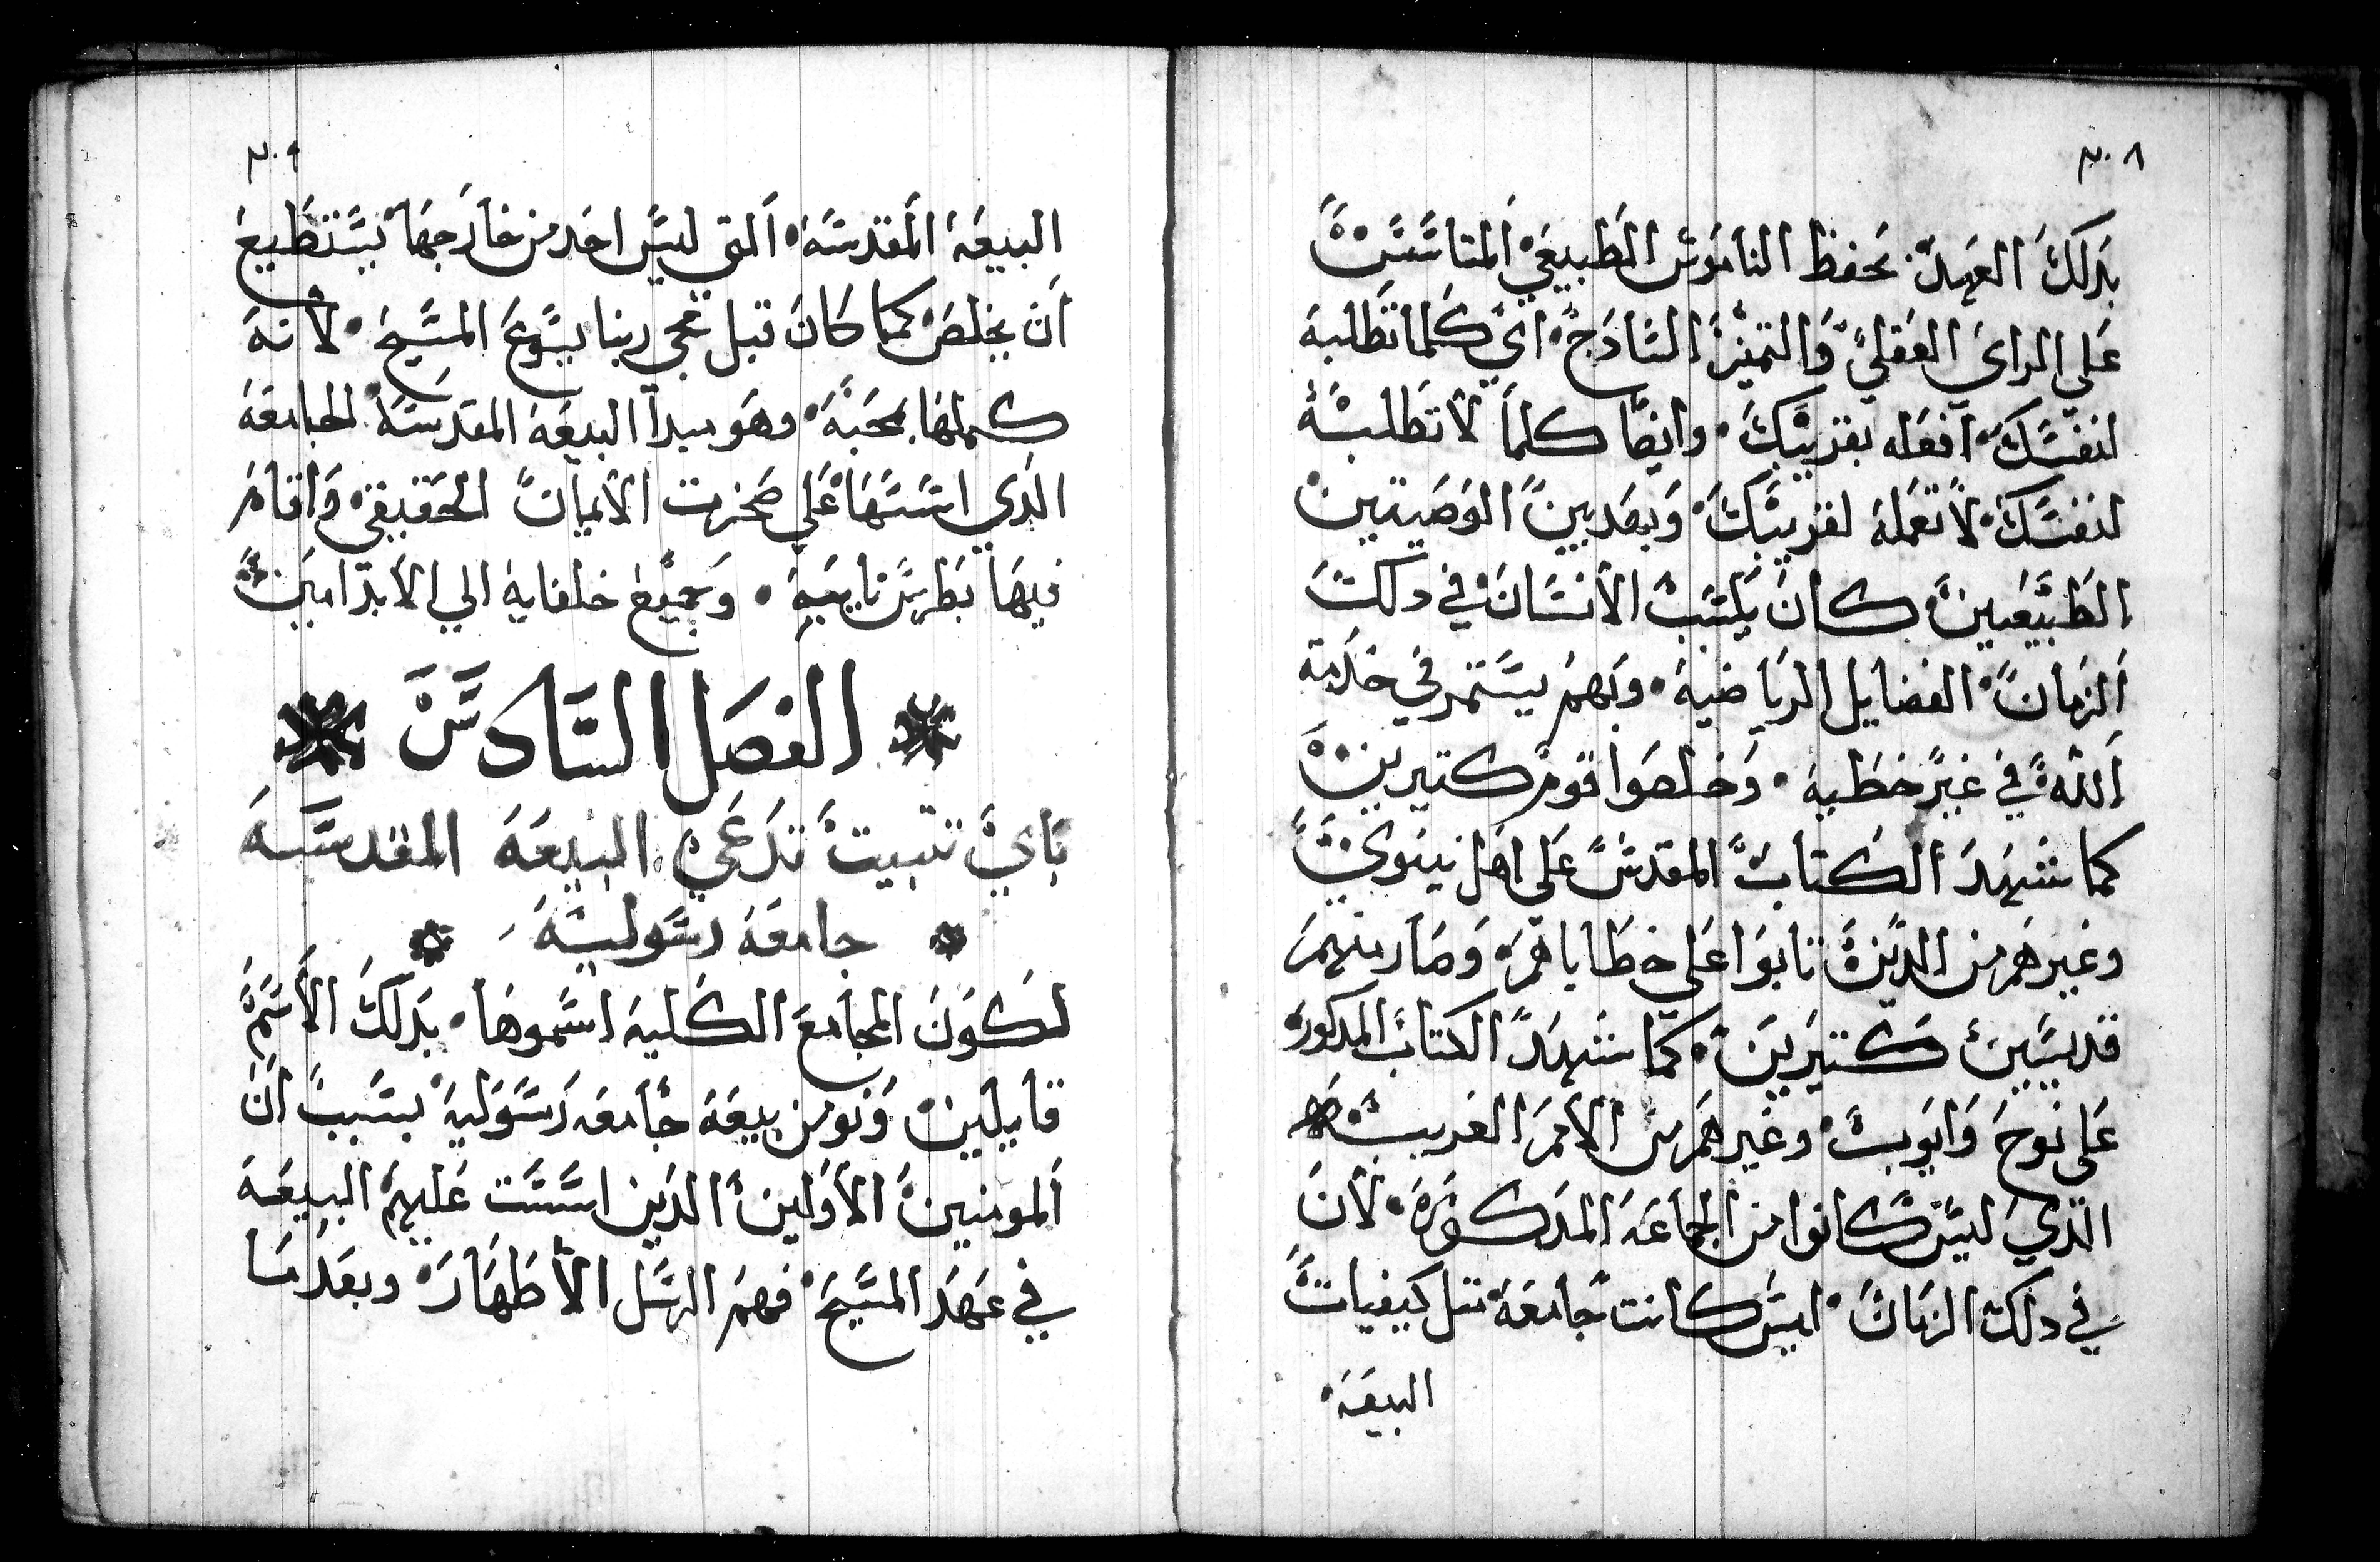 ٣٠٨
بدلك العهد. بحفظ الناموس الطبيعي المتاسس
علي الراي العقلي والتميز السادج. اي كلما تطلبه
لنفسك افعله بقريبك. وايضا كلما لا تطلبه
لنفسك لا تعمله لقريبك. وبهدين الوصيتين
الطبيعيين كان يكتسب الانسان في دلك
الزمان الفضايل الرياضيه. وبهم يستمر في خدمة
الله في غير خطيه. وخلصوا قوم كتيرين
كما شهد الكتاب المقدس علي اهل نينوي
وغيرهم من الدين تابوا علي خطاياهم وصار منهم
قديسين كتيرين. كما شهد الكتاب المدكور
علي نوح وايوب. وغيرهم من الامم الغريبه
الدي ليس كانوا من الجماعه المدكوره. لان
في دلك الزمان. ليس كانت جامعه متل كيفيات
البيعه
٣٠٩
البيعه المقدسه. التي ليس احد من خارجها يستطيع
ان يخلص كما كان قبل مجي ربنا يسوع المسيح. لانه
كملها بمحبته. وهو مبدا البيعه المقدسه الجامعه
الدي اسسها علي صخرت الايمان الحقيقي واقام
فيها بطرس نايبه. وجميع خلفايه الي الابد امين
الفصل السادس
باي تتبيت تدعي البيعه المقدسه
جامعه رسوليه
لكون المجامع الكليه اسموها. بدلك الاسم
قايلين ونومن ببيعه جامعه رسوليه بسبب ان
المومنين الاولين الدين اسست عليهم البيعه
في عهد المسيح. فهم الرسل الاطهار. وبعد ما